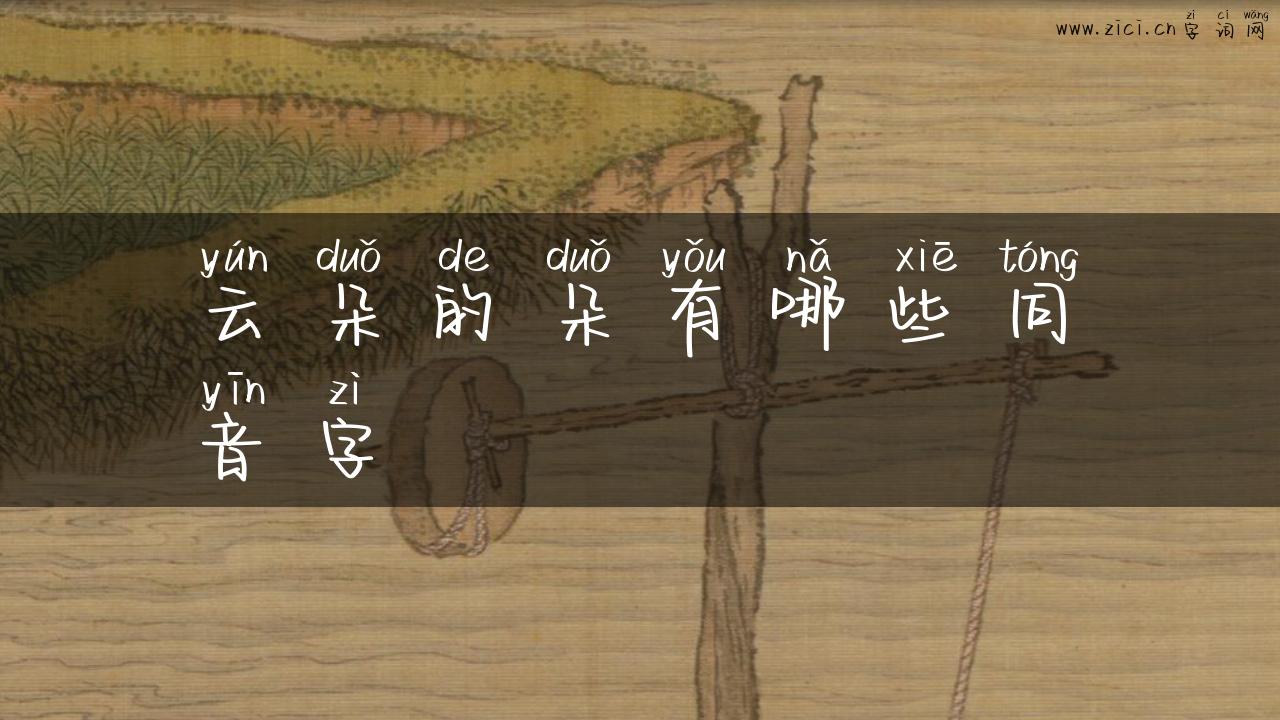 zì cí wǎng
www.zici.cn字词网
yún duǒ de duǒ yǒu nǎ xiē tóng
云朵的朵有哪些同
yīn zì
音字